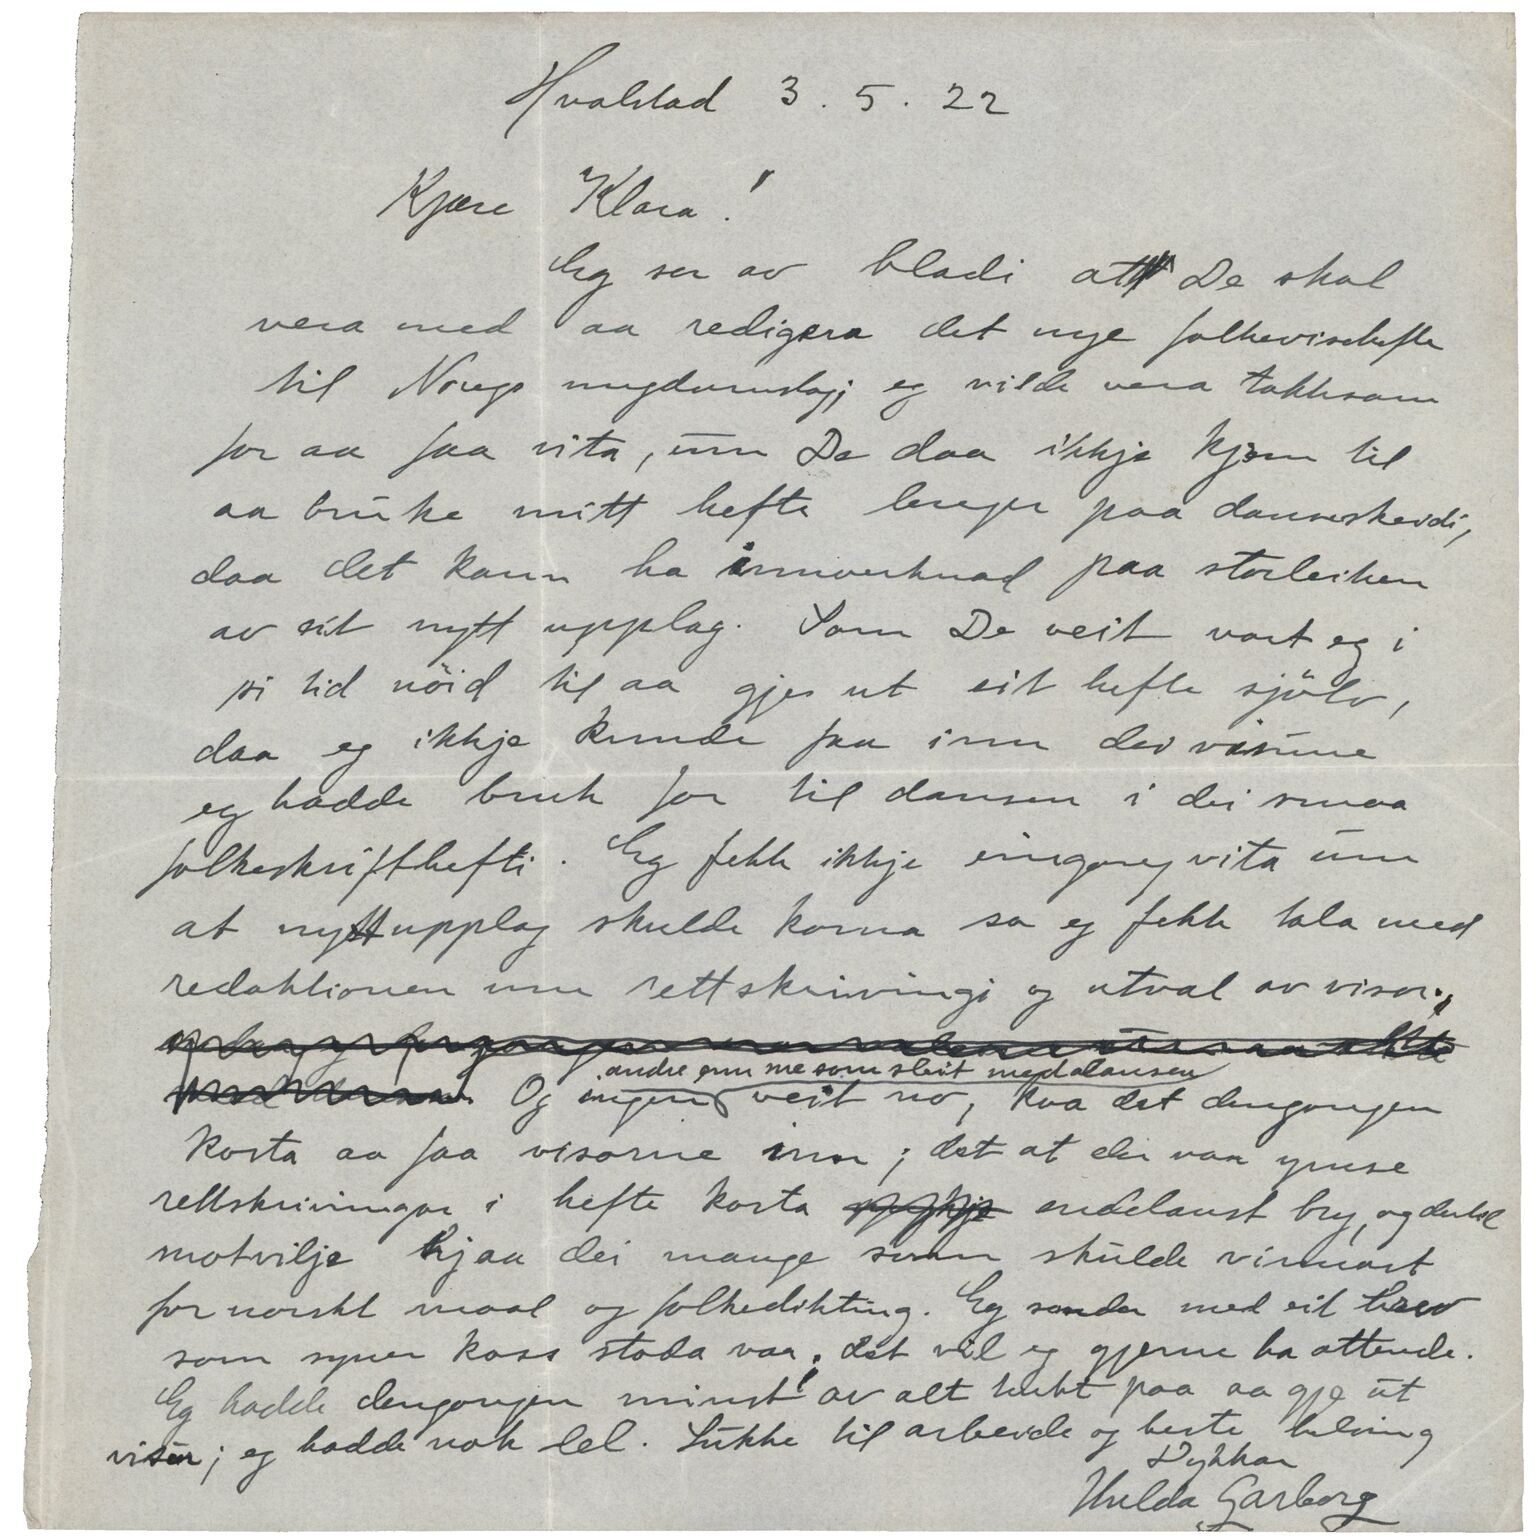 Hvalstad 3.5.22
Kjære Klara!
Eg ser av bladi at De skal
vera med aa redigera det nye folkevisehefte
til Noregs ungdomslag; eg vilde vera takksam
for aa faa vita, um De daa ikkje kjem til
aa bruke mitt hefte lenger paa danseskeidi,
daa det kann ha innverknad paa storleiken
av eit nytt upplag. Som De veit vart eg i
si tid nöid til aa gjeo ut eit hefte sjölv,
daa eg ikkje kunde faa inn dei visune
eg hadde bruk for til dansen i dei smaa
folkeskrifthefti. Eg fekk ikkje eingong vita um
at nytt upplag skulde koma so eg fekk tala med
redaktionen um rettskrivingi og utval av visor.
andre enn me som sleit med dansen
Og ingen veit no, kva det dengongen
kosta aa faa visorne inn; det at dei var ymse
rettskrivingar i hefte kosta endelaust bry, og dertil
motvilje hjaa dei mange som skulde vinnast
for norskt maal og folkedikting. Eg sender med eit brev
som syner koss stoda var; det vil eg gjerne ha attende.
Eg hadde dengongen minst av alt tenkt paa aa gje ut
visur; eg hadde nok lel. Lukke til arbeide og beste helsing
Dykkar
Hulda Garborg